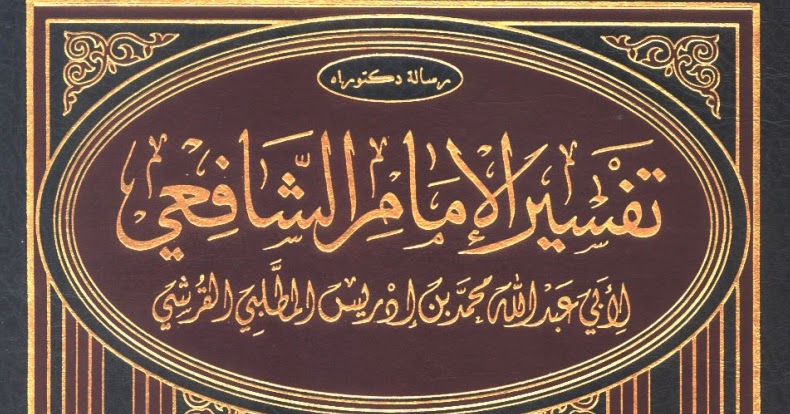 رسالة دكتوراه
تفسير الإمام الشافعي
لأبي عبد الله محمد بن إدريس المطلبي القرشي